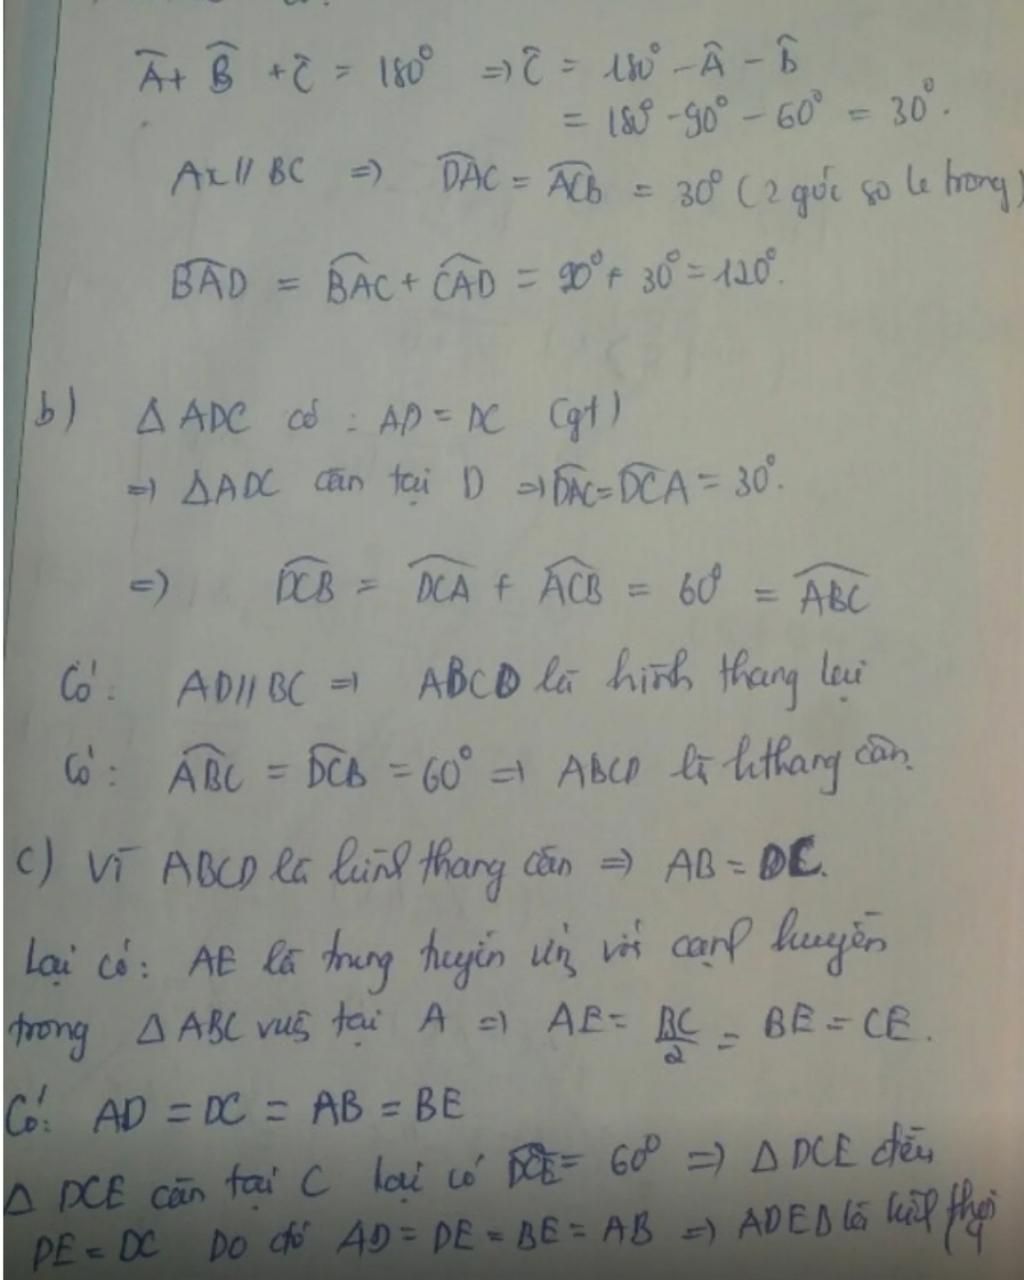 Â + B̂ + Ĉ = 180° => Ĉ = 180° - Â - B̂
= 180° - 90° - 60° = 30°.
Ax // BC => DAC = ACB = 30° (2 góc so le trong)
BAD = BAC + CAD = 90° + 30° = 120°.
b) Δ ADC có : AD = DC (gt)
=> ΔADC cân tại D => DAC = DCA = 30°.
=> DCB = DCA + ACB = 60° = ABC
Có: AD // BC => ABCD là hình thang lại
Có: ABC = DCB = 60° => ABCD là hthang cân.
c) Vì ABCD là hình thang cân => AB = DC.
Lại có: AE là trung tuyến ứng với cạnh huyền
trong Δ ABC vug tại A => AE = BC/2 = BE = CE.
Có: AD = DC = AB = BE
Δ DCE cân tại C lại có DCE = 60° => Δ DCE đều
DE = DC Do đó AD = DE = BE = AB => ADEB là hình thoi